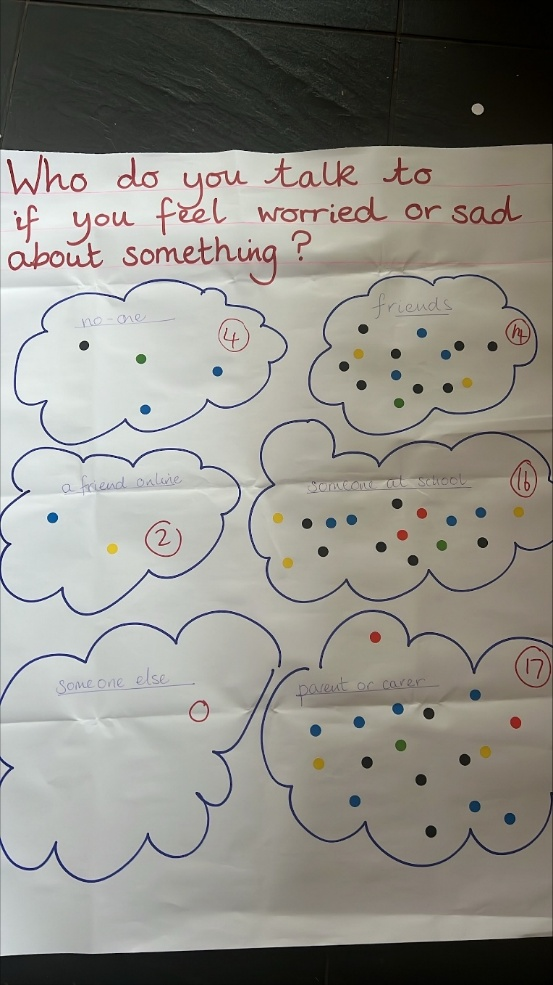 Who do you talk to
if you feel worried or sad
about something?
no-one
4
friends
14
a friend online
2
someone at school
16
someone else
0
parent or carer
17